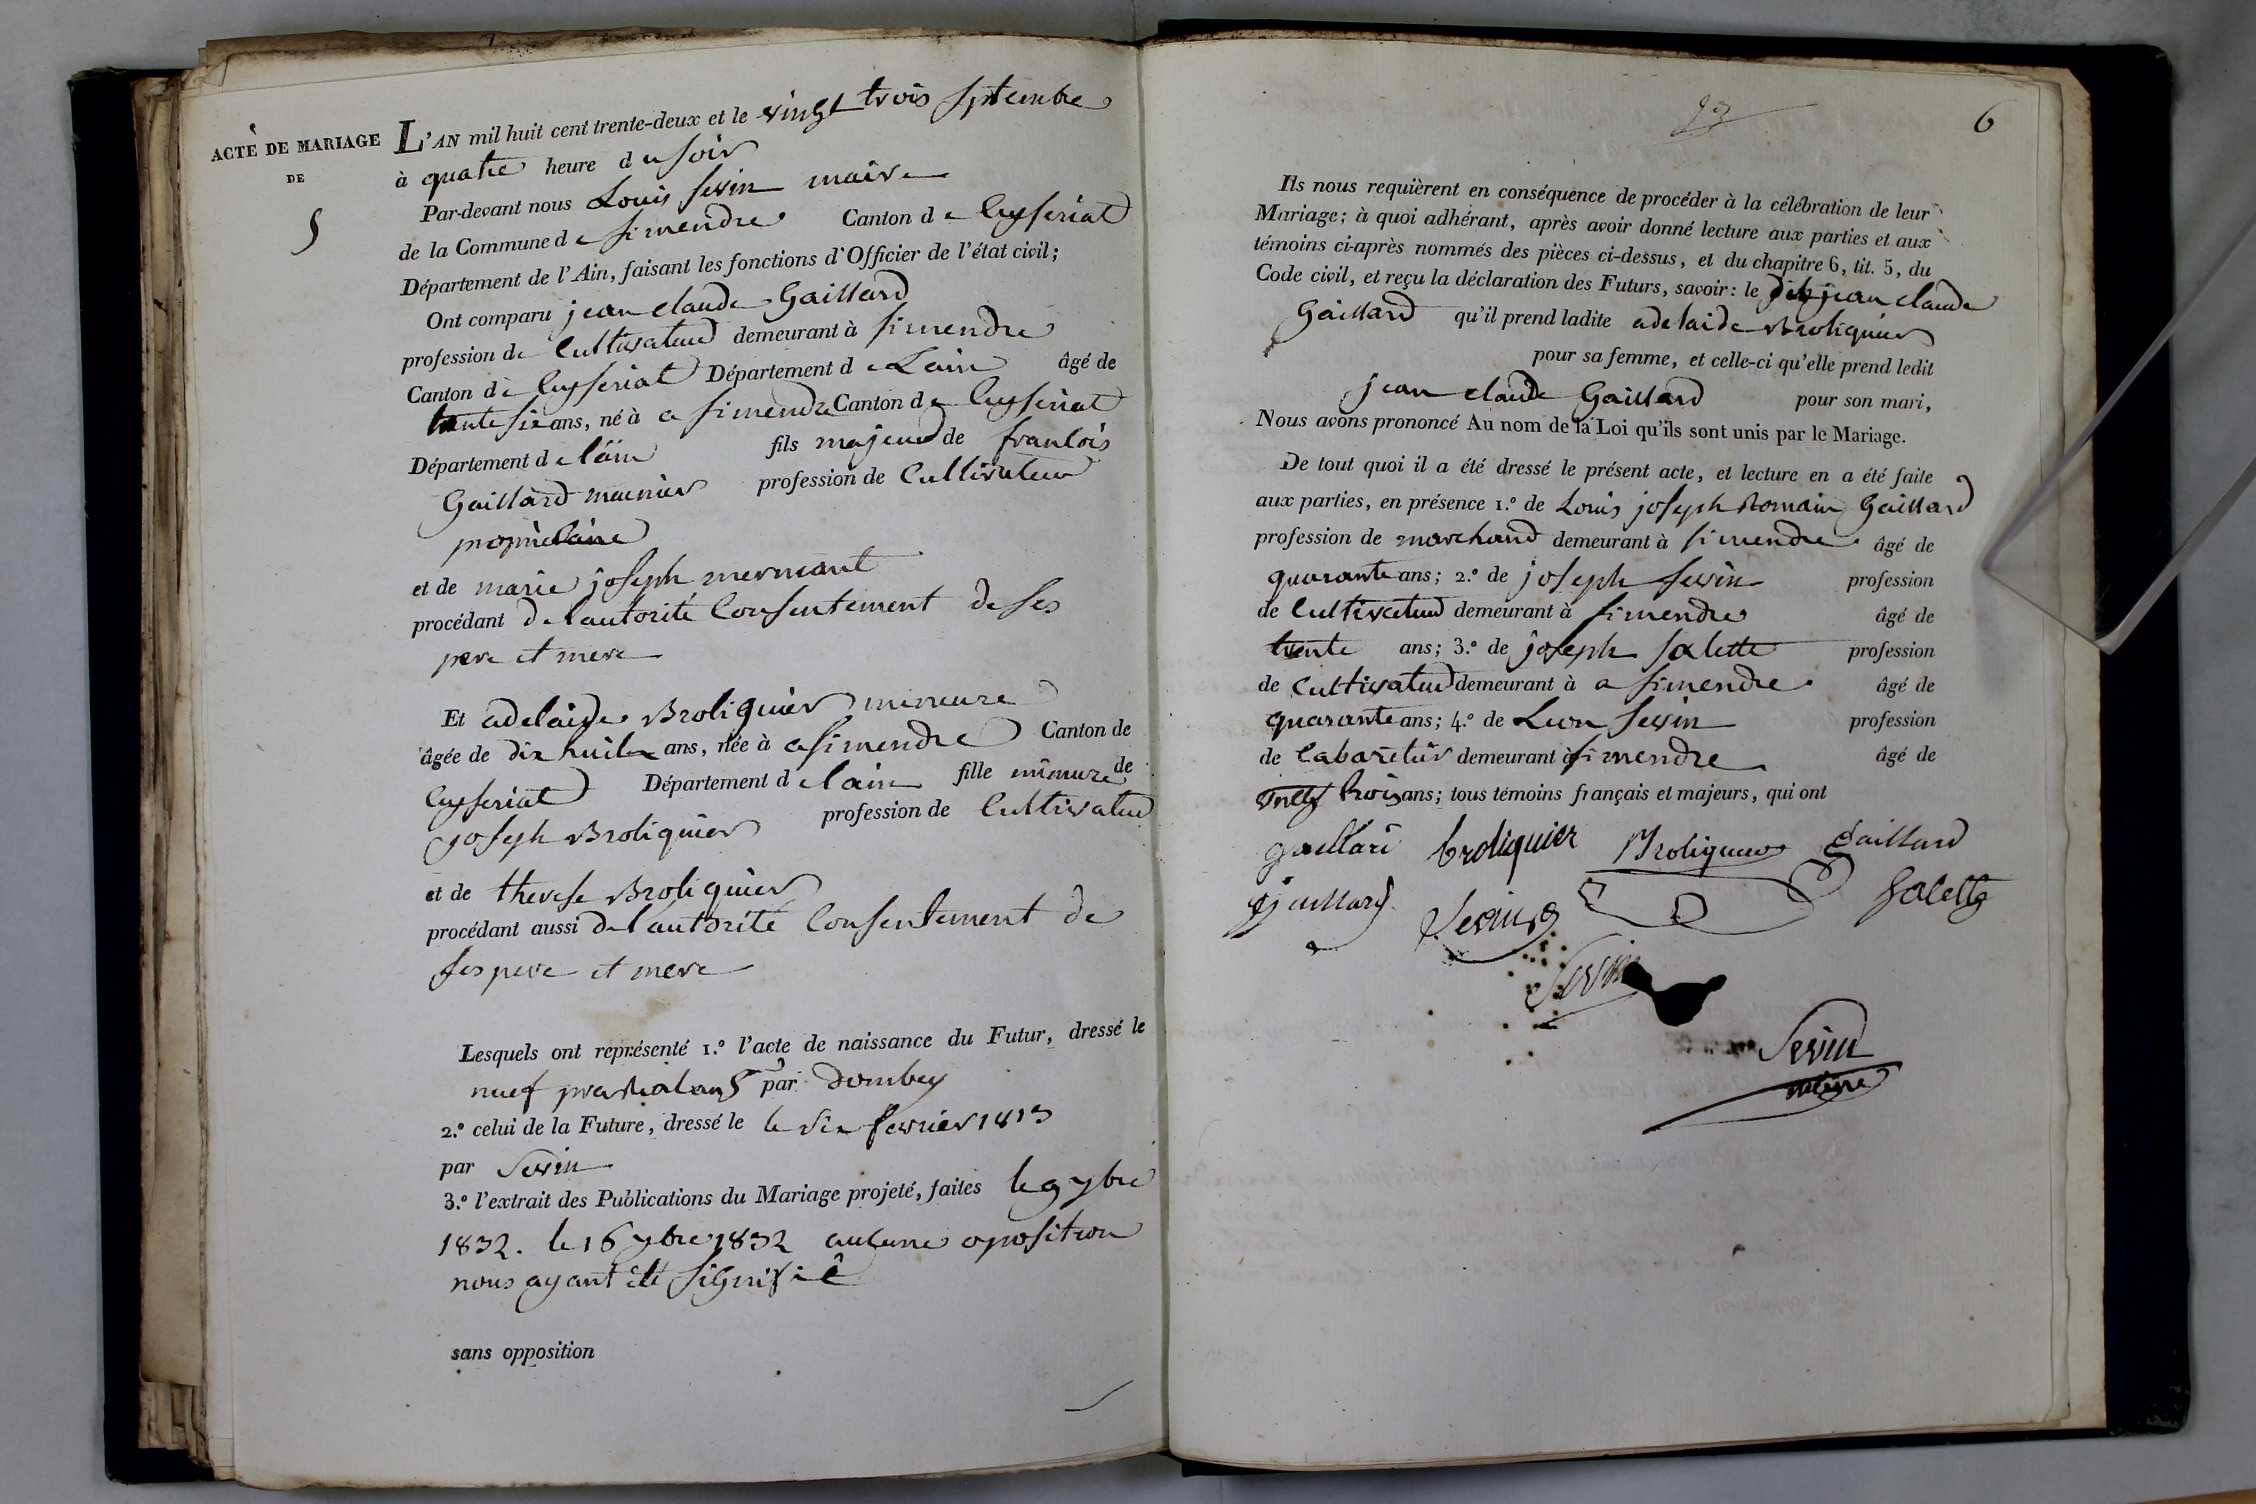 ACTE DE MARIAGE
DE
5
L'AN mil huit cent trente-deux et le vingt trois septembre
à quatre heure du soir
Par-devant nous Louis Sevin maire
de la Commune de Simendre Canton de Ceyseriat
Département de l'Ain, faisant les fonctions d'Officier de l'état civil;
Ont comparu jean claude Gaillard
profession de Cultivateur demeurant à Simendre
Canton de Ceyseriat Département de Lain âgé de
trente six ans, né à a Simendre Canton de Ceyseriat
Département de lain fils majeur de francois
Gaillard meunier profession de Cultivateur
propriétaire
et de marie joseph mermant
procédant de lautorité Consentement de ses
pere et mere
Et adelaide Broliquier mineure
âgée de dix huit ans, née à a Simendre Canton de
Ceyseriat Département de lain fille mineure de
joseph Broliquier profession de Cultivateur
et de therese Broliquier
procédant aussi de lautorité Consentement de
ses pere et mere
Lesquels ont représenté 1.º l'acte de naissance du Futur, dressé le
neuf prairial an 5 par Dombey
2.º celui de la Future, dressé le le six fevrier 1813
par Sevin
3.º l'extrait des Publications du Mariage projeté, faites le 9 7bre
1832. le 16 7bre 1832 aucune oposition
nous ayant été signifié
sans opposition
6
Ils nous requièrent en conséquence de procéder à la célébration de leur
Mariage; à quoi adhérant, après avoir donné lecture aux parties et aux
témoins ci-après nommés des pièces ci-dessus, et du chapitre 6, tit. 5, du
Code civil, et reçu la déclaration des Futurs, savoir: le dit jean claude
Gaillard qu'il prend ladite adelaide Broliquier
pour sa femme, et celle-ci qu'elle prend ledit
jean claude Gaillard pour son mari,
Nous avons prononcé Au nom de la Loi qu'ils sont unis par le Mariage.
De tout quoi il a été dressé le présent acte, et lecture en a été faite
aux parties, en présence 1.º de Louis joseph Romain Gaillard
profession de marchand demeurant à Simendre âgé de
quarante ans; 2.º de joseph Sevin profession
de Cultivateur demeurant à Simendre âgé de
trente ans; 3.º de joseph Salette profession
de Cultivateur demeurant à a Simendre âgé de
quarante ans; 4.º de Leon Sevin profession
de Cabaretier demeurant à Simendre âgé de
vingt trois ans; tous témoins français et majeurs, qui ont
gaillard broliquier Broliquier gaillard
gaillard Sevin Salette
Sevin
Sevin
maire